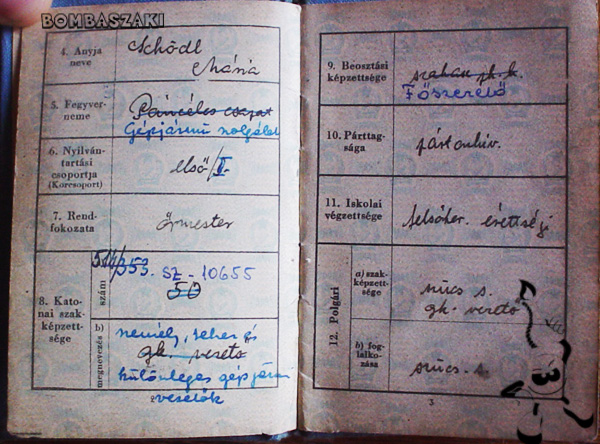 BOMBASZAKI
4. Anyja
neve
Schödl
Mária
5. Fegyver-
neme
Páncélos csapat
Gépjármű szolgálat
6. Nyilván-
tartási
csoportja
(Korcsoport)
első/II.
7. Rend-
fokozata
őrmester
8. Katonai szak-
képzett-
sége
szám
SZ-10655
50
b)
megnevezés
személy, teher és
gk. vezető
különleges gépjármű
vezetők
9. Beosztási
képzettsége
Főszerelő
10. Párttag-
sága
párt onkív.
11. Iskolai
végzettsége
felsőker. érettségi
12. Polgári
a) szak-
képzett-
sége
szűcs s.
gk. vezető
b) fog-
lalko-
zása
szűcs. s.
3